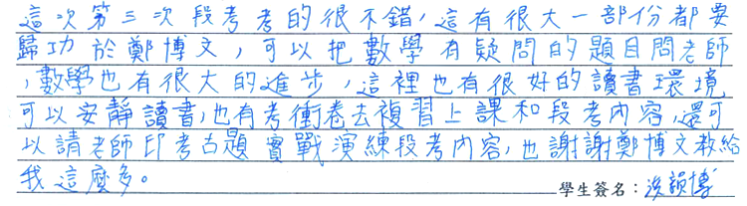 這次第三次段考考的很不錯，這有很大一部份都要
歸功於鄭博文，可以把數學有疑問的題目問老師
，數學也有很大的進步，這裡也有很好的讀書環境
可以安靜讀書，也有考衝卷去複習上課和段考內容，還可
以請老師印考古題實戰演練段考內容，也謝謝鄭博文教給
我這麼多。
學生簽名：